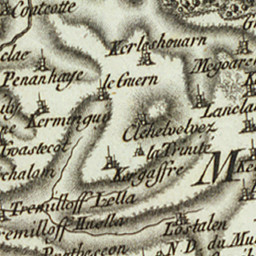 Coetcotte
Kerleshouarn
clae
Penanhaye
le Guern
Megoare
Lancla
Kermenguy
Clehelvelvez
Goastecot
la Trinite
rchalom
Kergaffre
M
Tremilloff Lella
Tremilloff Huella
Lostalen
N D du Mu